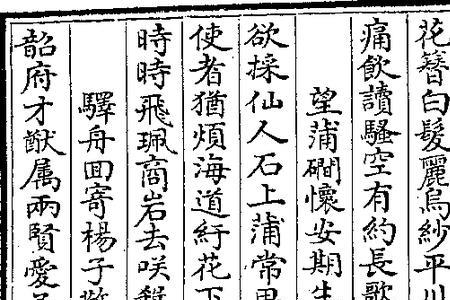 花簪白髮麗烏紗平川
痛飲讀騷空有約長歌
望蒲磵懷安期生
欲採仙人石上蒲常思
使者猶煩海道紆花下
時時飛珮商岩去咲殺
驛舟回寄楊子
韶府才猷属兩賢愛